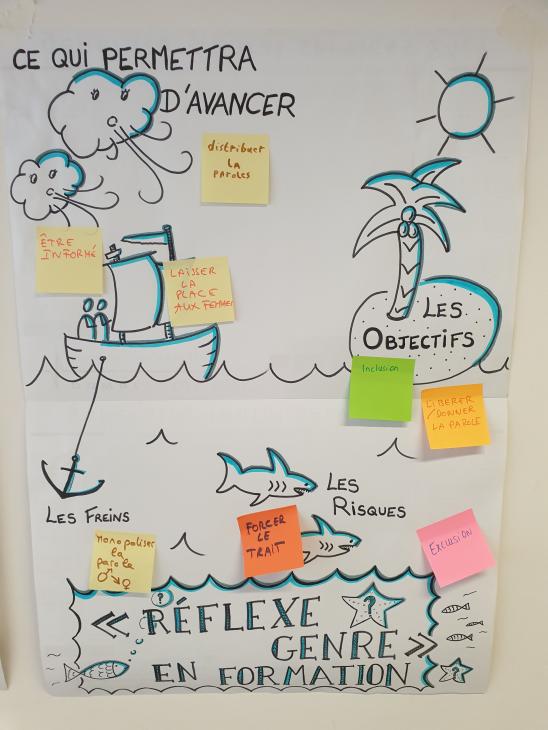 CE QUI PERMETTRA
D'AVANCER
distribuer
LA
PAROLES
ÊTRE
INFORMÉ
LAISSER
LA
PLACE
AUX FEMMES
LES
OBJECTIFS
Inclusion
LIBERER
/DONNER
LA PAROLE
LES FREINS
LES
RISQUES
Monopoliser
la
parole
♂↘♀
FORCER
LE
TRAIT
EXCLUSION
?
?
« RÉFLEXE
GENRE »
EN FORMATION
?